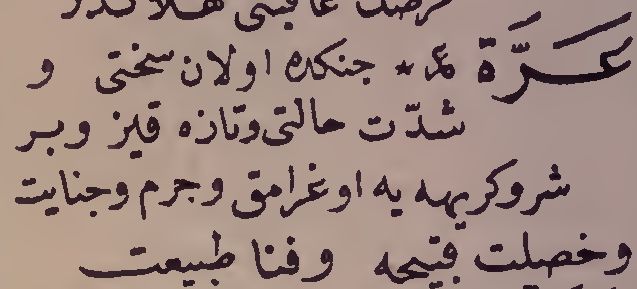 مرضك عاقبتى هلاكدر
عرّة عر * جنكده اولان سختى و
شدّت حالتى وتازه قيز و بر
شر وكريهه يه اوغرامق وجرم وجنايت
وخصلت قبيحه وفنا طبيعت